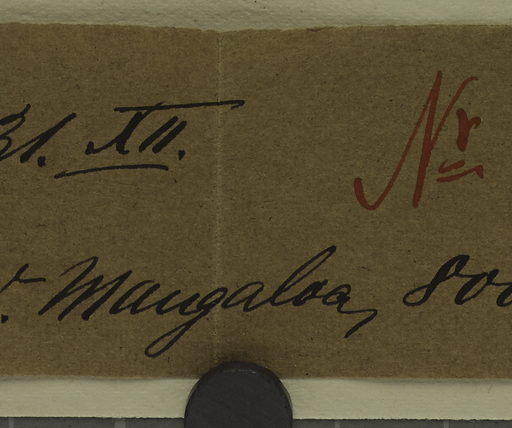 31. XII. Nr
v. Mangaloa, 800